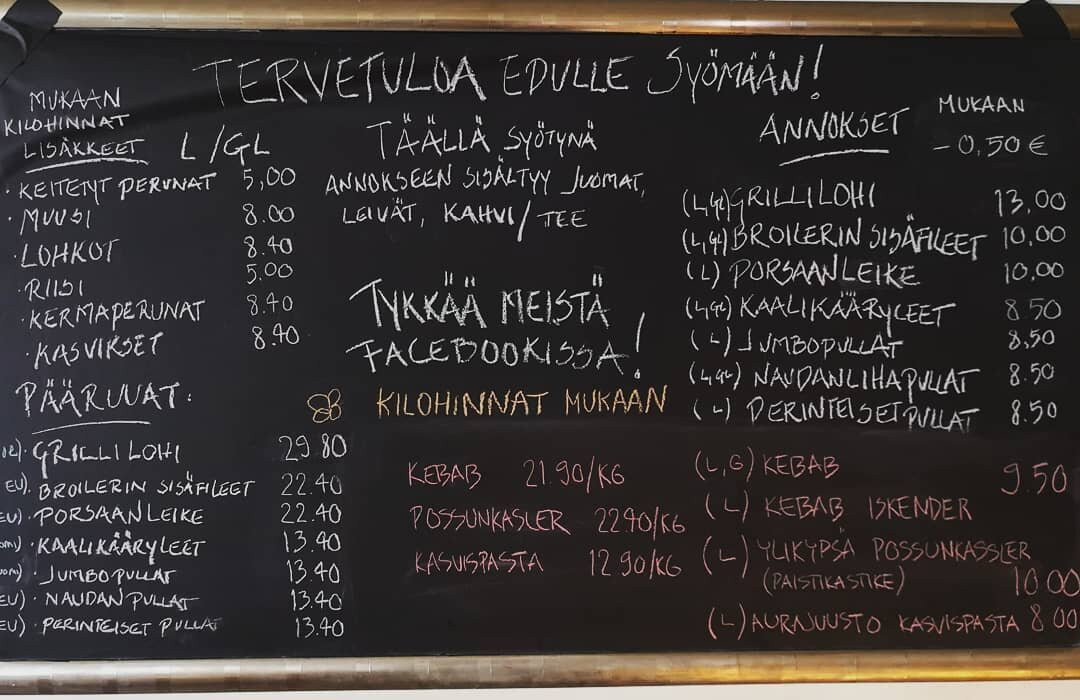 TERVETULOA EDULLE SYÖMÄÄN!
MUKAAN
KILOHINNAT
LISÄKKEET L/GL
· KEITETYT PERUNAT 5,00
· MUUSI 8.00
· LOHKOT 8.40
· RIISI 5.00
· KERMAPERUNAT 8.40
· KASVIKSET 8.40
PÄÄRUUAT:
GRILLILOHI 29.80
EU). BROILERIN SISÄFILEET 22.40
EU) · PORSAANLEIKE 22.40
· KAALIKÄÄRYLEET 13.40
· JUMBOPULLAT 13.40
EU) · NAUDANPULLAT 13.40
EU) · PERINTEISET PULLAT 13.40
TÄÄLLÄ SYÖTYNÄ
ANNOKSEEN SISÄLTYY JUOMAT,
LEIVÄT, KAHVI/TEE
TYKKÄÄ MEISTÄ
FACEBOOKISSA!
KILOHINNAT MUKAAN
KEBAB 21.90/KG
POSSUNKASLER 22.90/KG
KASVISPASTA 12.90/KG
ANNOKSET MUKAAN
- 0,50 €
(L,GL) GRILLILOHI 13,00
(L,GL) BROILERIN SISÄFILEET 10,00
(L) PORSAANLEIKE 10,00
(L,GL) KAALIKÄÄRYLEET 8.50
(L) JUMBOPULLAT 8,50
(L,GL) NAUDANLIHAPULLAT 8.50
(L) PERINTEISET PULLAT 8.50
(L,G) KEBAB 9.50
(L) KEBAB ISKENDER
(L) YLIKYPSÄ POSSUNKASSLER
(PAISTIKASTIKE) 10.00
(L) AURAJUUSTO KASVISPASTA 8.00